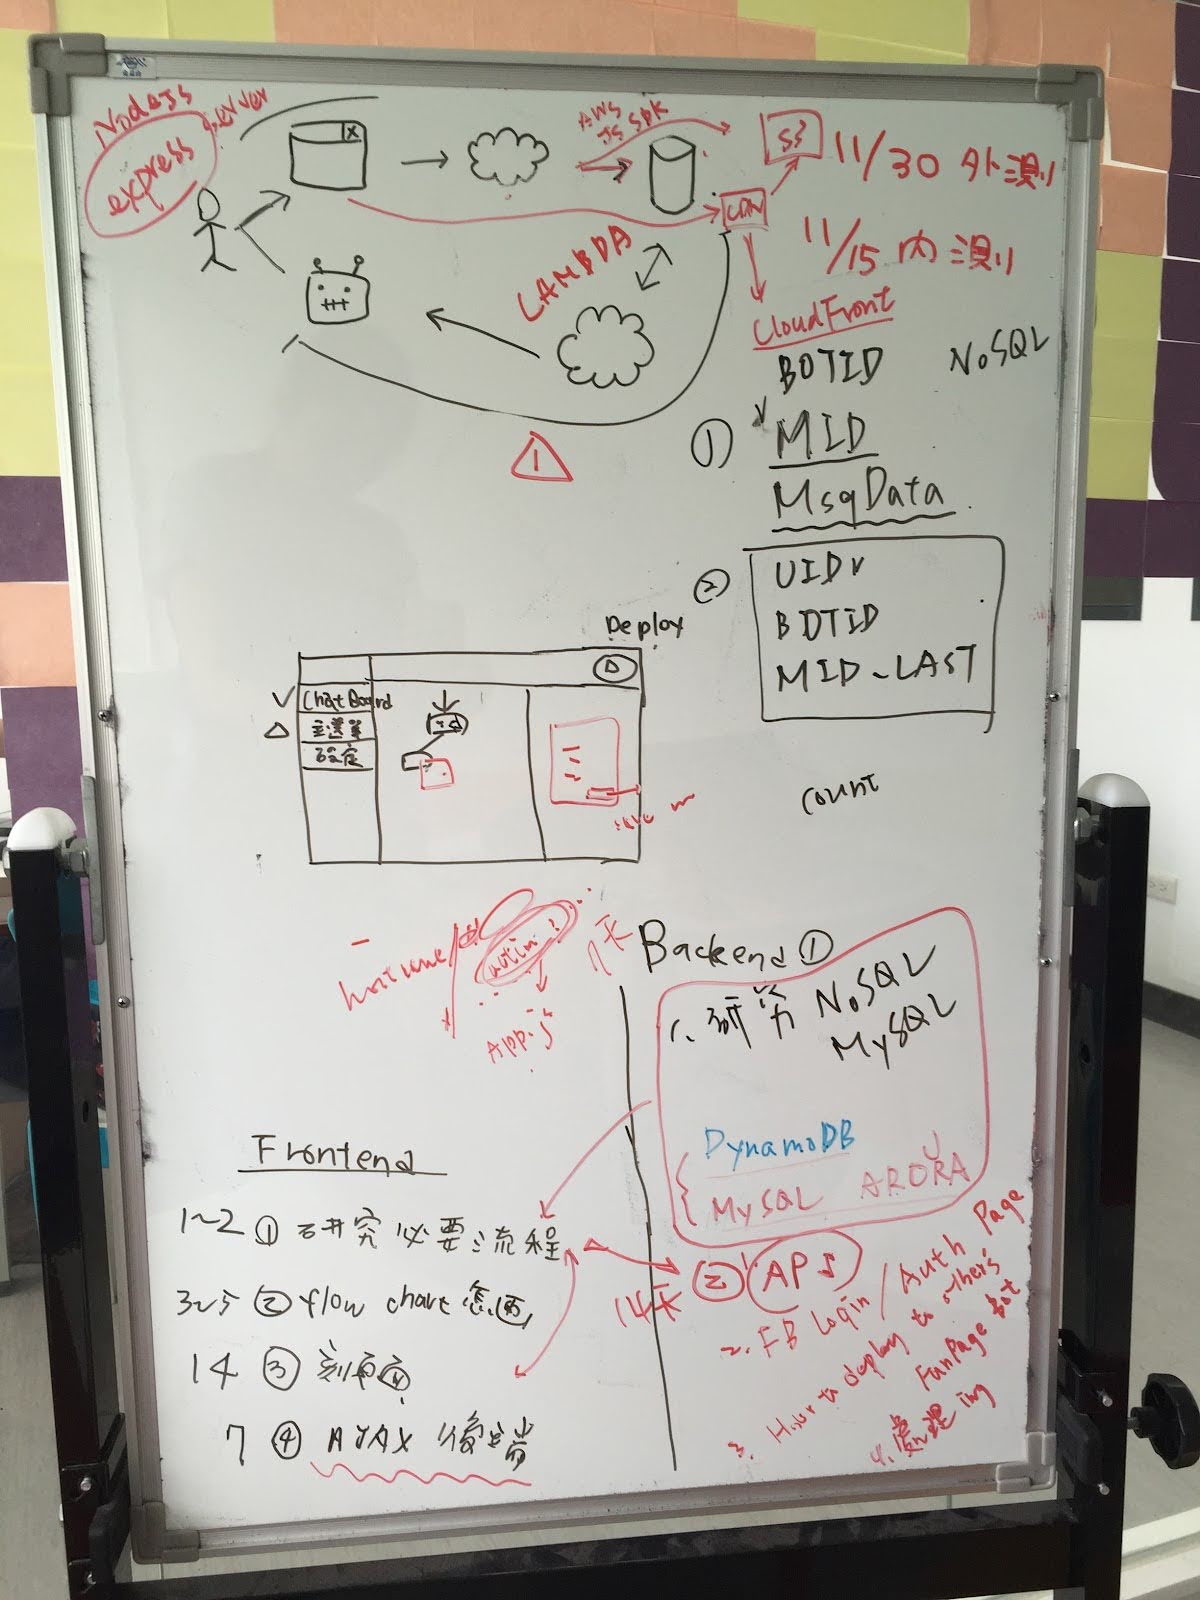 NodeJS server
express
AWS
JS SDK
S3
11/30 外測
CDN
11/15 内測
LAMBDA
CloudFront
BOTID
NoSQL
① v MID
MsgData
② UID v
BOTID
MID_LAST
Deploy
ChatBoard
主選單
設定
count
action
App.js
7天
Backend ①
1. 研究 NoSQL
MySQL
DynamoDB
MySQL ARORA
U
Frontend
1~2 ① 研究必要流程
3~5 ② flow chart 怎画
14 ③ 刻頁面
7 ④ AJAX 後端
14天 ② API
2. FB Login / Auth Page
3. How to deploy to others
FanPage Bot
4. 處理 img